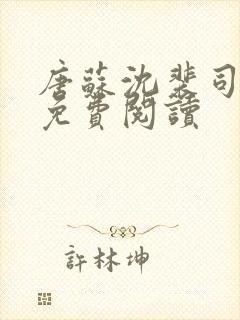 唐蘇沈裴司
免費閱讀
許林坤